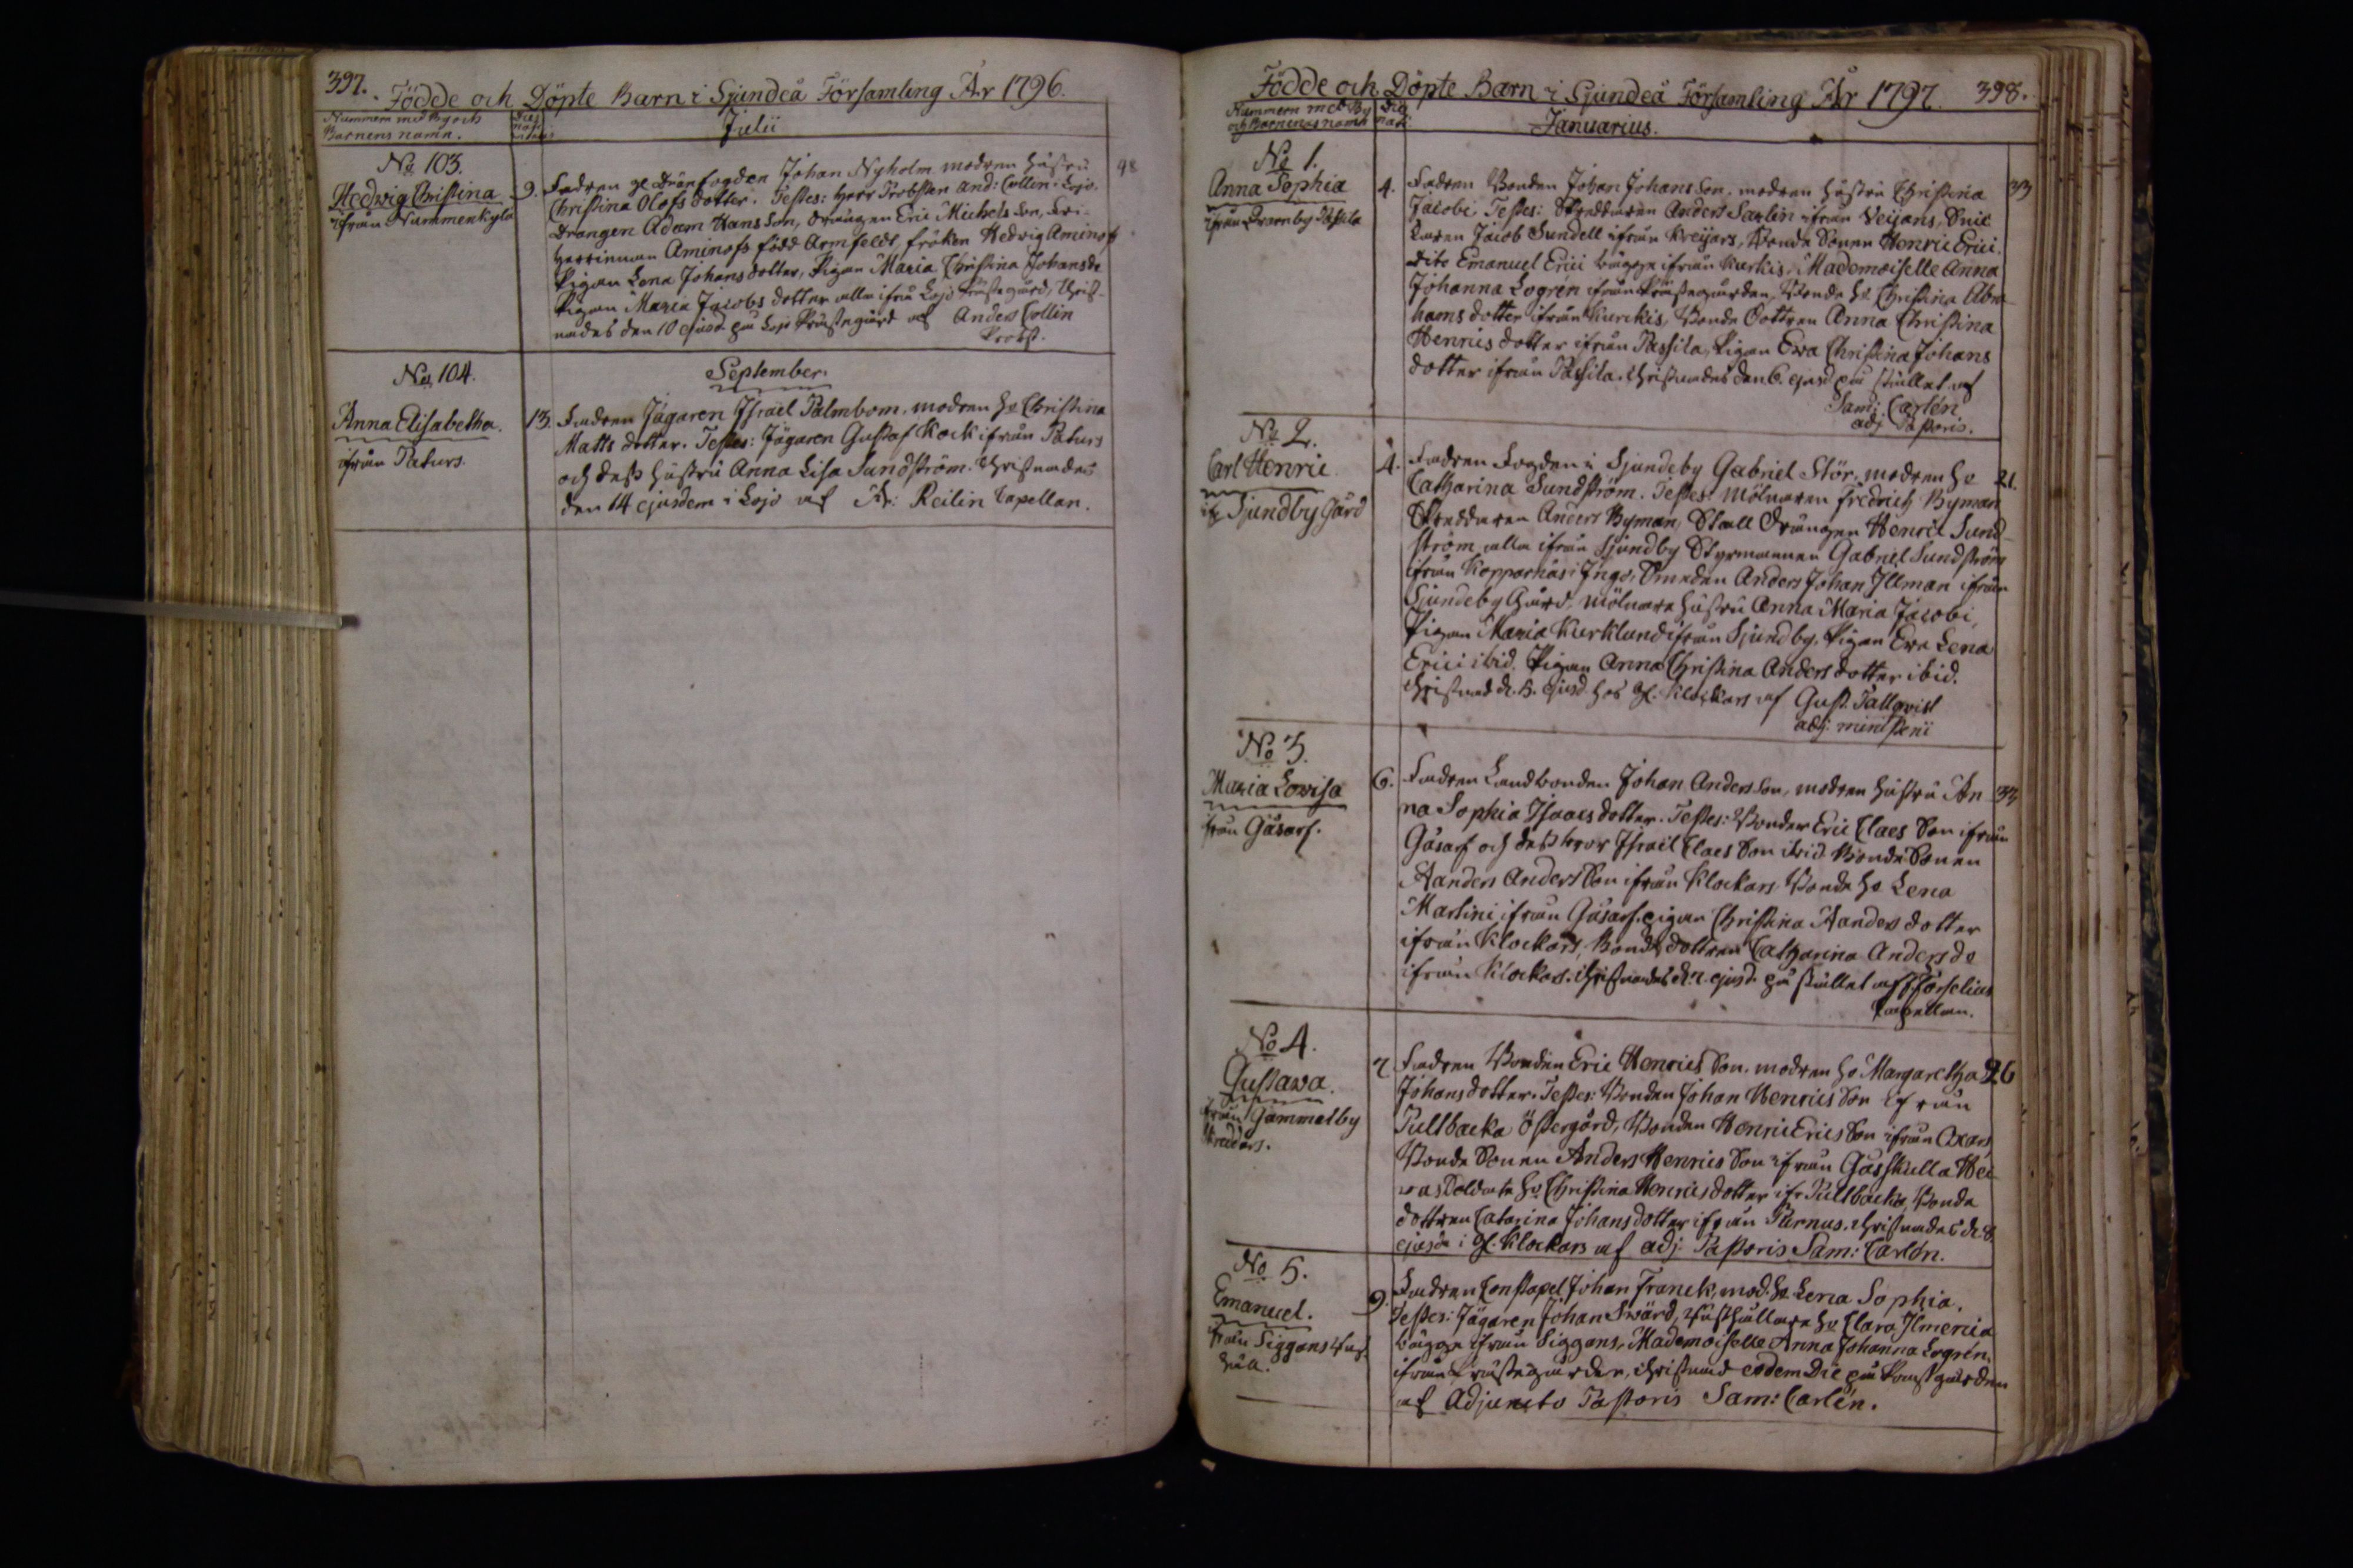 397. Födde och Döpte Barn i Sjundeå Församling År 1796.
Nummern med By och
Barnens namn.
Julii
No 103.
Hedwig Christina
ifrån Nummenkylä
9. Fadren Johan Nyholm modren hustru 98
Christina Olofs dotter. Testes: Herr Probsten And: Collin i Lojo,
Drängen Adam Hans Son, drängen Eric Michels Son,
Aminoff född Armfeldt, fröken Hedwig Aminoff
Pigan Lena Johans dotter, Pigan Maria Christina Johans dr
Pigan Maria Jacobs dotter alla ifrån Lojo Prästegård, Christ-
nades den 10 ejusd. på Lojo Prästegård af Anders Collin
Probst.
No 104.
September.
Anna Elisabetha.
ifrån Paturs.
13. Fadren Jägaren Israël Palmbom, modren h: Christina
Matts dotter. Testes: Jägaren Gustaf Kock ifrån Paturs
och dess hustru Anna Lisa Sundström. Christnades
den 14 ejusdem i Lojo af Reilin Capellan.
Födde och Döpte Barn i Sjundeå Församling År 1797. 398.
Nummern med By
och Barnenas namn
Januarius.
No 1.
Anna Sophia
ifrån Passila
4. Fadren Bonden Johan Johans Son, modren hustru Christina 33
Jacobi Testes: Skreddaren Anders Sarlin ifrån Veijans,
Jacob Sundell ifrån Kreijars, Bonde Sonen Henric Erici.
dito Emanuel Erici bägge ifrån Kurkis, Mademoiselle Anna
Johanna Logrén ifrån Prästegården, Bonde h: Christina Abra-
hams dotter ifrån Kurckis, Bonde Dottren Anna Christina
Henrics dotter ifrån Passila, Pigan Ewa Christina Johans
dotter ifrån Passila. Christnades den 6. ejusd på stället af
Sam: Carlén
adj Pastoris.
No 2.
Carl Henric
ifr Sjundby Gård
4. Fadren Fogden i Sjundeby Gabriel Stör, modren h: 21.
Catharina Sundström. Testes: Mölnaren Fredrich Byman
Skreddaren Anders Byman, Stall Drängen Henric Sund-
ström alla ifrån Sjundby Styrmannen Gabriel Sundström
ifrån Kopparnäs i Ingo, Smeden Anders Johan Illman ifrån
Sjundeby Gård, Mölnare hustru Anna Maria Jacobi,
Pigan Maria Kurklund ifrån Sjundby, Pigan Ewa Lena
Erici ibid. Pigan Anna Christina Anders dotter ibid.
Christnad d. 5. ejusd. hos Gl. Klockars af Gust. Tallqvist
adj: ministerii
No 3.
Maria Lowisa
från Gåsarf.
6. Fadren Landbonden Johan Anders Son, modren hustru An- 33
na Sophia Isaacs dotter. Testes: Bonden Eric Claes Son ifrån
Gåsarf och dess bror Israël Claes Son ibid. Bonde Sonen
Aanders Anders Son ifrån Klockars, Bonde h: Lena
Martini ifrån Gåsarf, pigan Christina Aanders dotter
ifrån Klockars, Bonde dottren Catharina Anders dr
ifrån Klockars. Christnades d: 7. ejusd. på stället af Forselius
Capellan.
No 4.
Gustawa.
från Gammelby
Skreddars.
7 Fadren Bonden Eric Henrics Son, modren h: Margaretha 26
Johans dotter. Testes: Bonden Johan Henrics Son ifrån
Pullbacka Östergård, Bonden Henric Erics Son ifrån Oxars,
Bonde Sonen Anders Henrics Son ifrån Gåsskulla
Soldate h: Christina Henrics dotter ifr Pullbacka, Bonde
dottren Catarina Johans dotter ifrån Purnus. Christnades d: 8.
ejusd: i Gl. Klockars af adj: Pastoris Sam: Carlén.
No 5.
Emanuel.
från Siggans
håll.
9. Fadren Constapel Johan Franck, mod: h: Lena Sophia.
Testes: Jägaren Johan Swärd, h: Clara Ilmenia
bägge ifrån Siggans, Mademoiselle Anna Johanna Logrén,
ifrån Prästegården, Christnad eodem Die på Prestgården
af Adjuncto Pastoris Sam: Carlén.